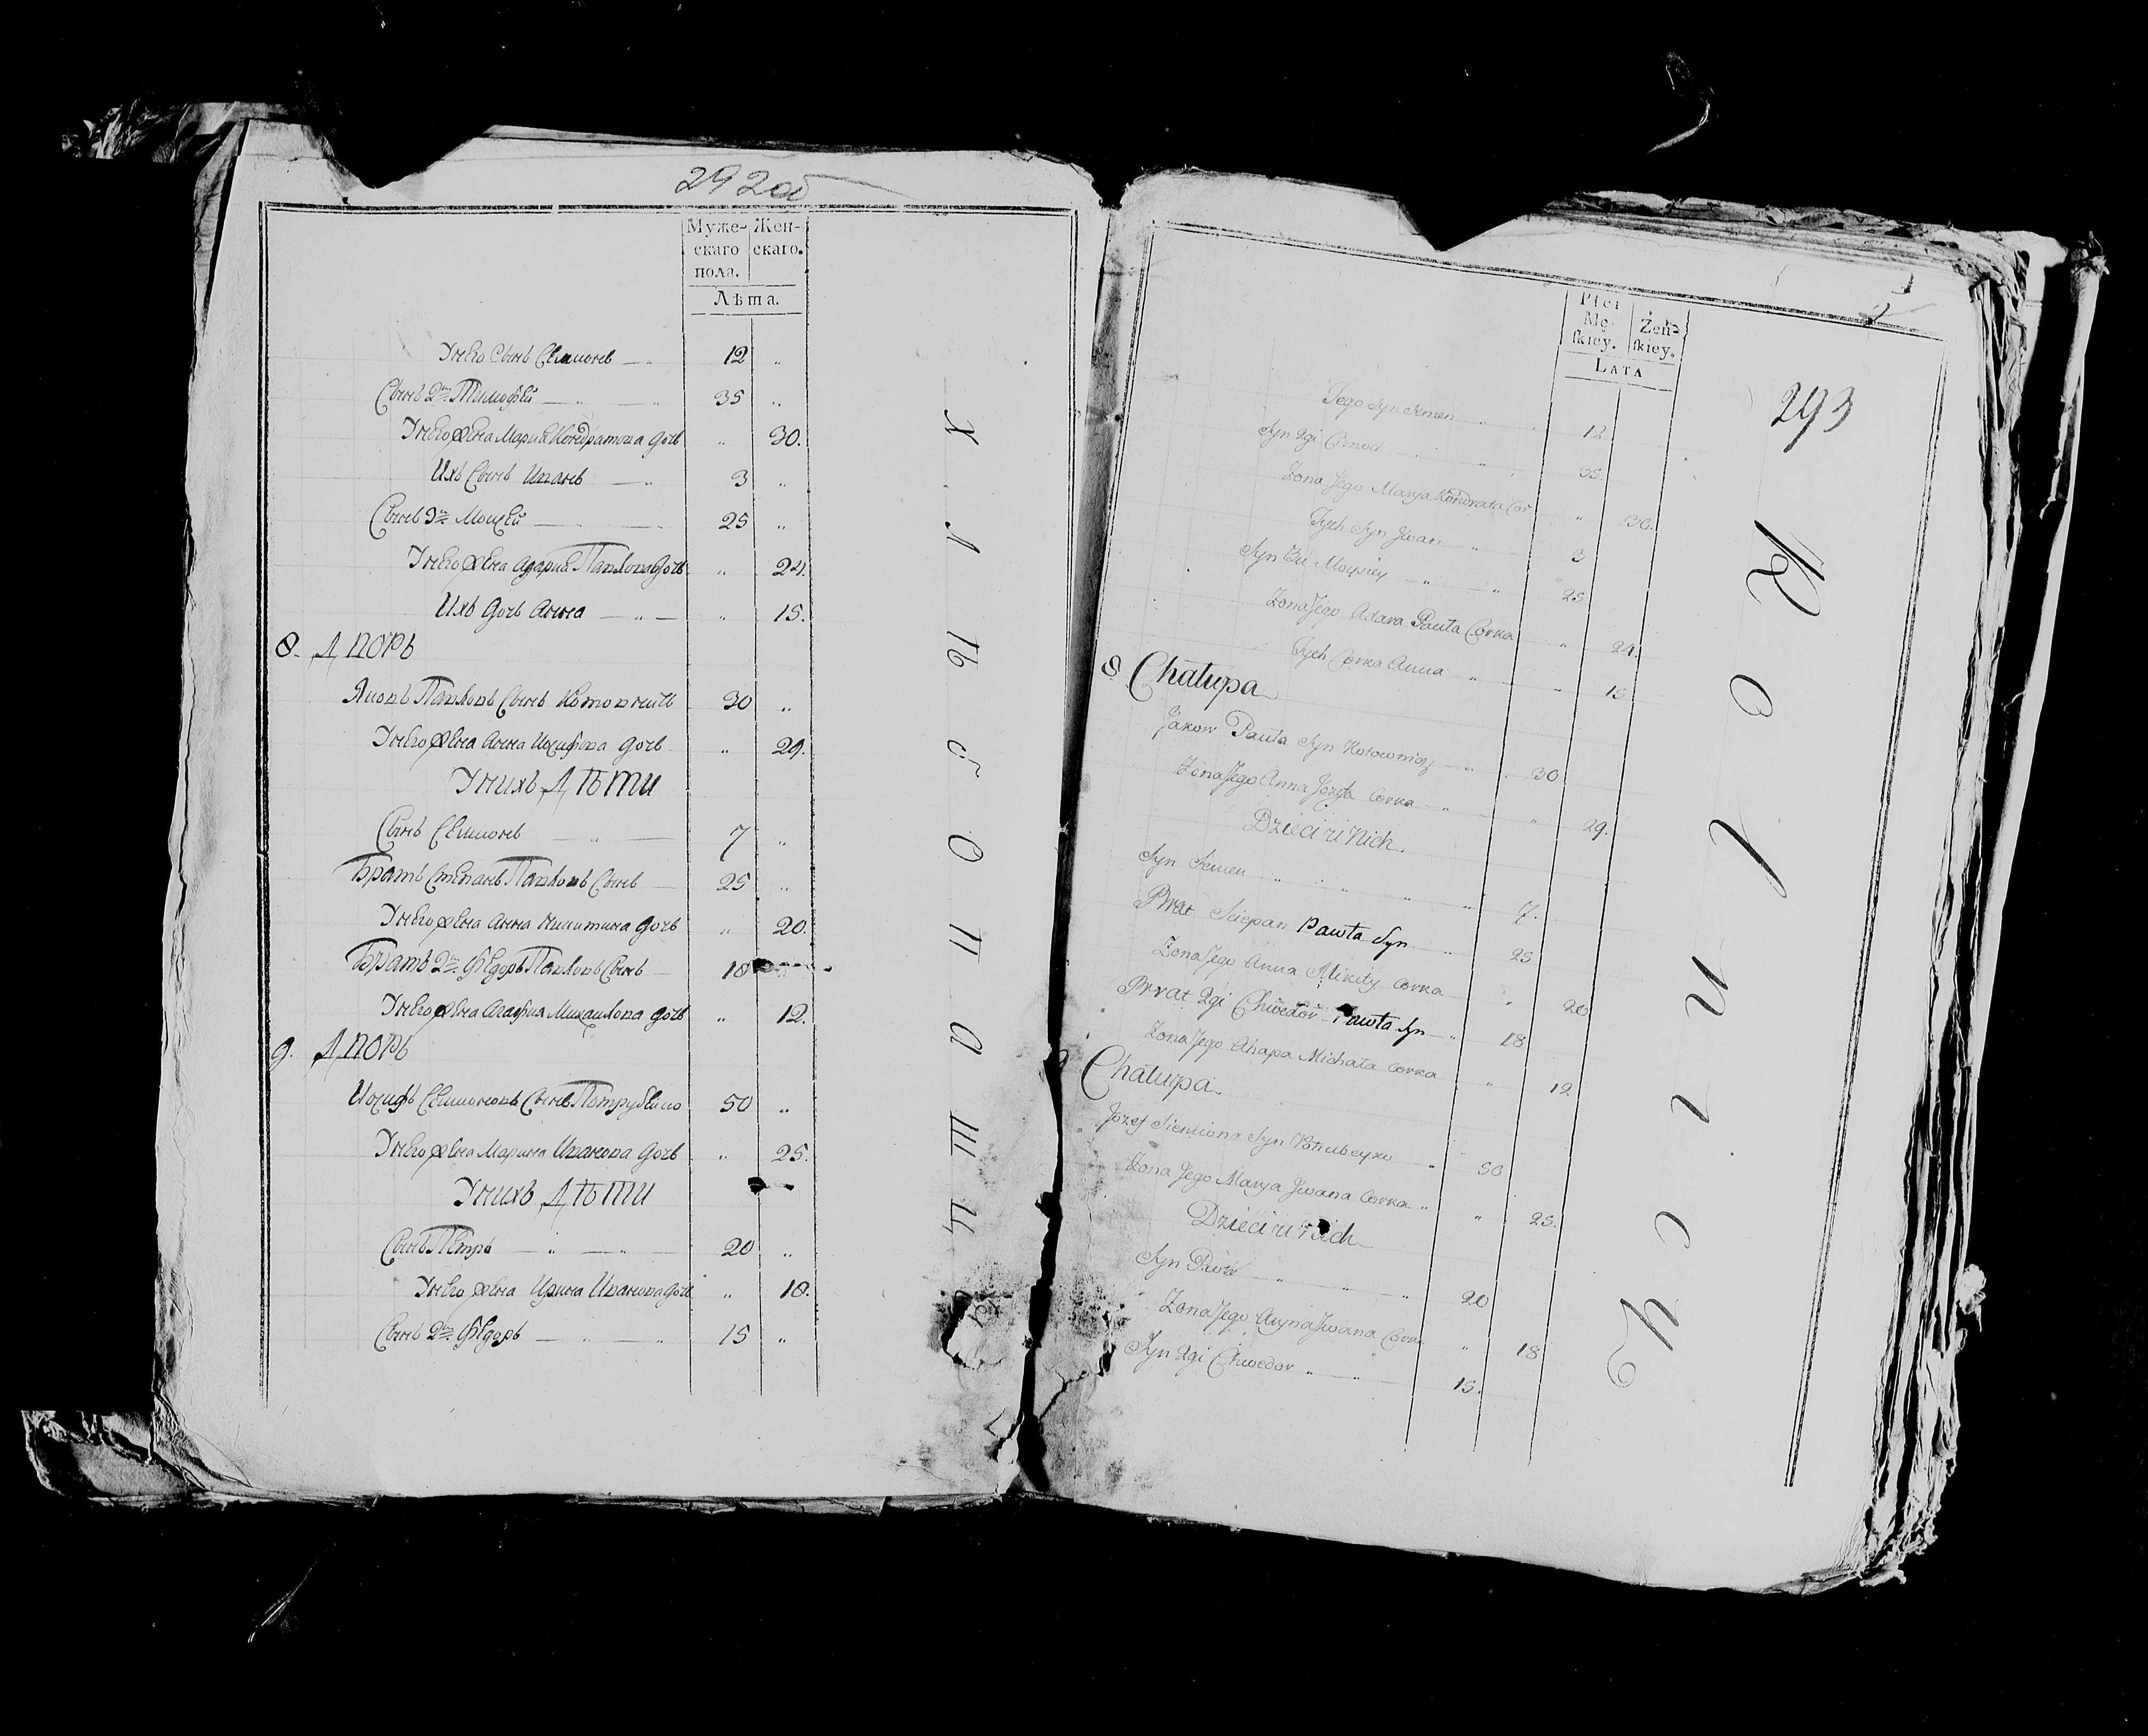 292об
Муже- Жен-
скаго скаго.
пола.
Лѣта.
Унего Сынъ Семионъ 12 „
Сынъ 2й Тимофей 35 „
Унего жена Мария Кондратова дочь „ 30.
Ихъ Сынъ Иванъ 3 „
Сынъ 3й Мойсей 25 „
Унего жена Адария Павлова дочь „ 24.
Ихъ дочь Анна „ 15.
8. Дворъ
Яковъ Павловъ Сынъ Котовничъ 30 „
Унего жена Анна Иосифова дочь „ 29.
Унихъ Дѣти
Сынъ Семионъ 7 „
Братъ Степанъ Павловъ Сынъ 25 „
Унего жена Анна Никитина дочь „ 20.
Братъ 2й Федоръ Павловъ Сынъ 18
Унего жена Агафия Михаилова дочь „ 12.
9. Дворъ
Иосифъ Семионовъ Сынъ Потрубейко 50 „
Унего жена Марина Иванова дочь „ 25.
Унихъ Дѣти
Сынъ Петръ 20 „
Унего жена Ирина Иванова дочь „ 18.
Сынъ 2й Федоръ 15 „
Х л ѣ б о п а ш ц
Płci
Mę- Żeń-
skiey. skiey.
LATA
293
Jego Syn Semen 12
Syn 2gi 35.
Zona Jego Marya Kondrata Cor „ 30.
Jych Syn Jwan 3
Syn 3ci Moysiey 25
Zona Jego Adara Pawła Corka „ 24.
Jych Corka Anna „ 15
8. Chałupa
Jakow Pawła Syn Kotownicz 30
Zona Jego Anna Jozefa Corka „ 29.
Dzieci u Nich.
Syn Semen 7.
Brat Sciepan Pawła Syn 25
Zona Jego Anna Mikity Corka „ 20
Brat 2gi Chwedor Pawła Syn 18
Zona Jego Ahapa Michała Corka „ 12
Chałupa
Jozef Siemiona Syn Potrubeyko 50
Zona Jego Marya Jwana Corka „ 25.
Dzieci u Nich
Syn Piotr 20
Zona Jego Aryna Jwana Corka „ 18
Syn 2gi Chwedor 15.
R o l n i c y